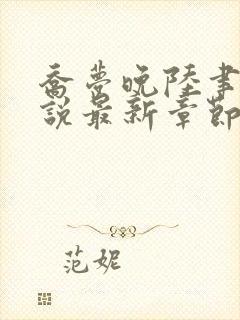 喬夢晚陸書
說最新章節
范妮